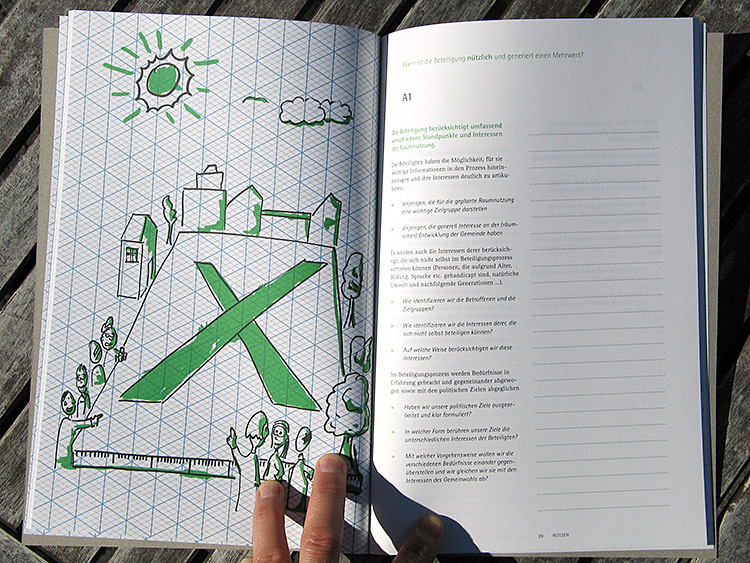 Wann ist die Beteiligung nützlich und generiert einen Mehrwert?
A1
Die Beteiligung berücksichtigt umfassend
verschiedene Standpunkte und Interessen
der Raumnutzung.
Die Beteiligten haben die Möglichkeit, für sie
wichtige Informationen in den Prozess hinein-
zutragen und ihre Interessen deutlich zu artiku-
lieren.
» diejenigen, die für die geplante Raumnutzung
eine wichtige Zielgruppe darstellen
» diejenigen, die generell Interesse an der (räum-
lichen) Entwicklung der Gemeinde haben
Es werden auch die Interessen derer berücksich-
tigt, die sich nicht selbst im Beteiligungsprozess
vertreten können (Personen, die aufgrund Alter,
Bildung, Sprache etc. gehandicapt sind, natürliche
Umwelt und nachfolgende Generationen ...).
» Wie identifizieren wir die Betroffenen und die
Zielgruppen?
» Wie identifizieren wir die Interessen derer, die
sich nicht selbst beteiligen können?
» Auf welche Weise berücksichtigen wir diese
Interessen?
Im Beteiligungsprozess werden Bedürfnisse in
Erfahrung gebracht und gegeneinander abgewo-
gen sowie mit den politischen Zielen abgeglichen.
» Haben wir unsere politischen Ziele ausgear-
beitet und klar formuliert?
» In welcher Form berühren unsere Ziele die
unterschiedlichen Interessen der Beteiligten?
» Mit welcher Vorgehensweise wollen wir die
verschiedenen Bedürfnisse einander gegen-
überstellen und wie gleichen wir sie mit den
Interessen des Gemeinwohls ab?
29 NUTZEN